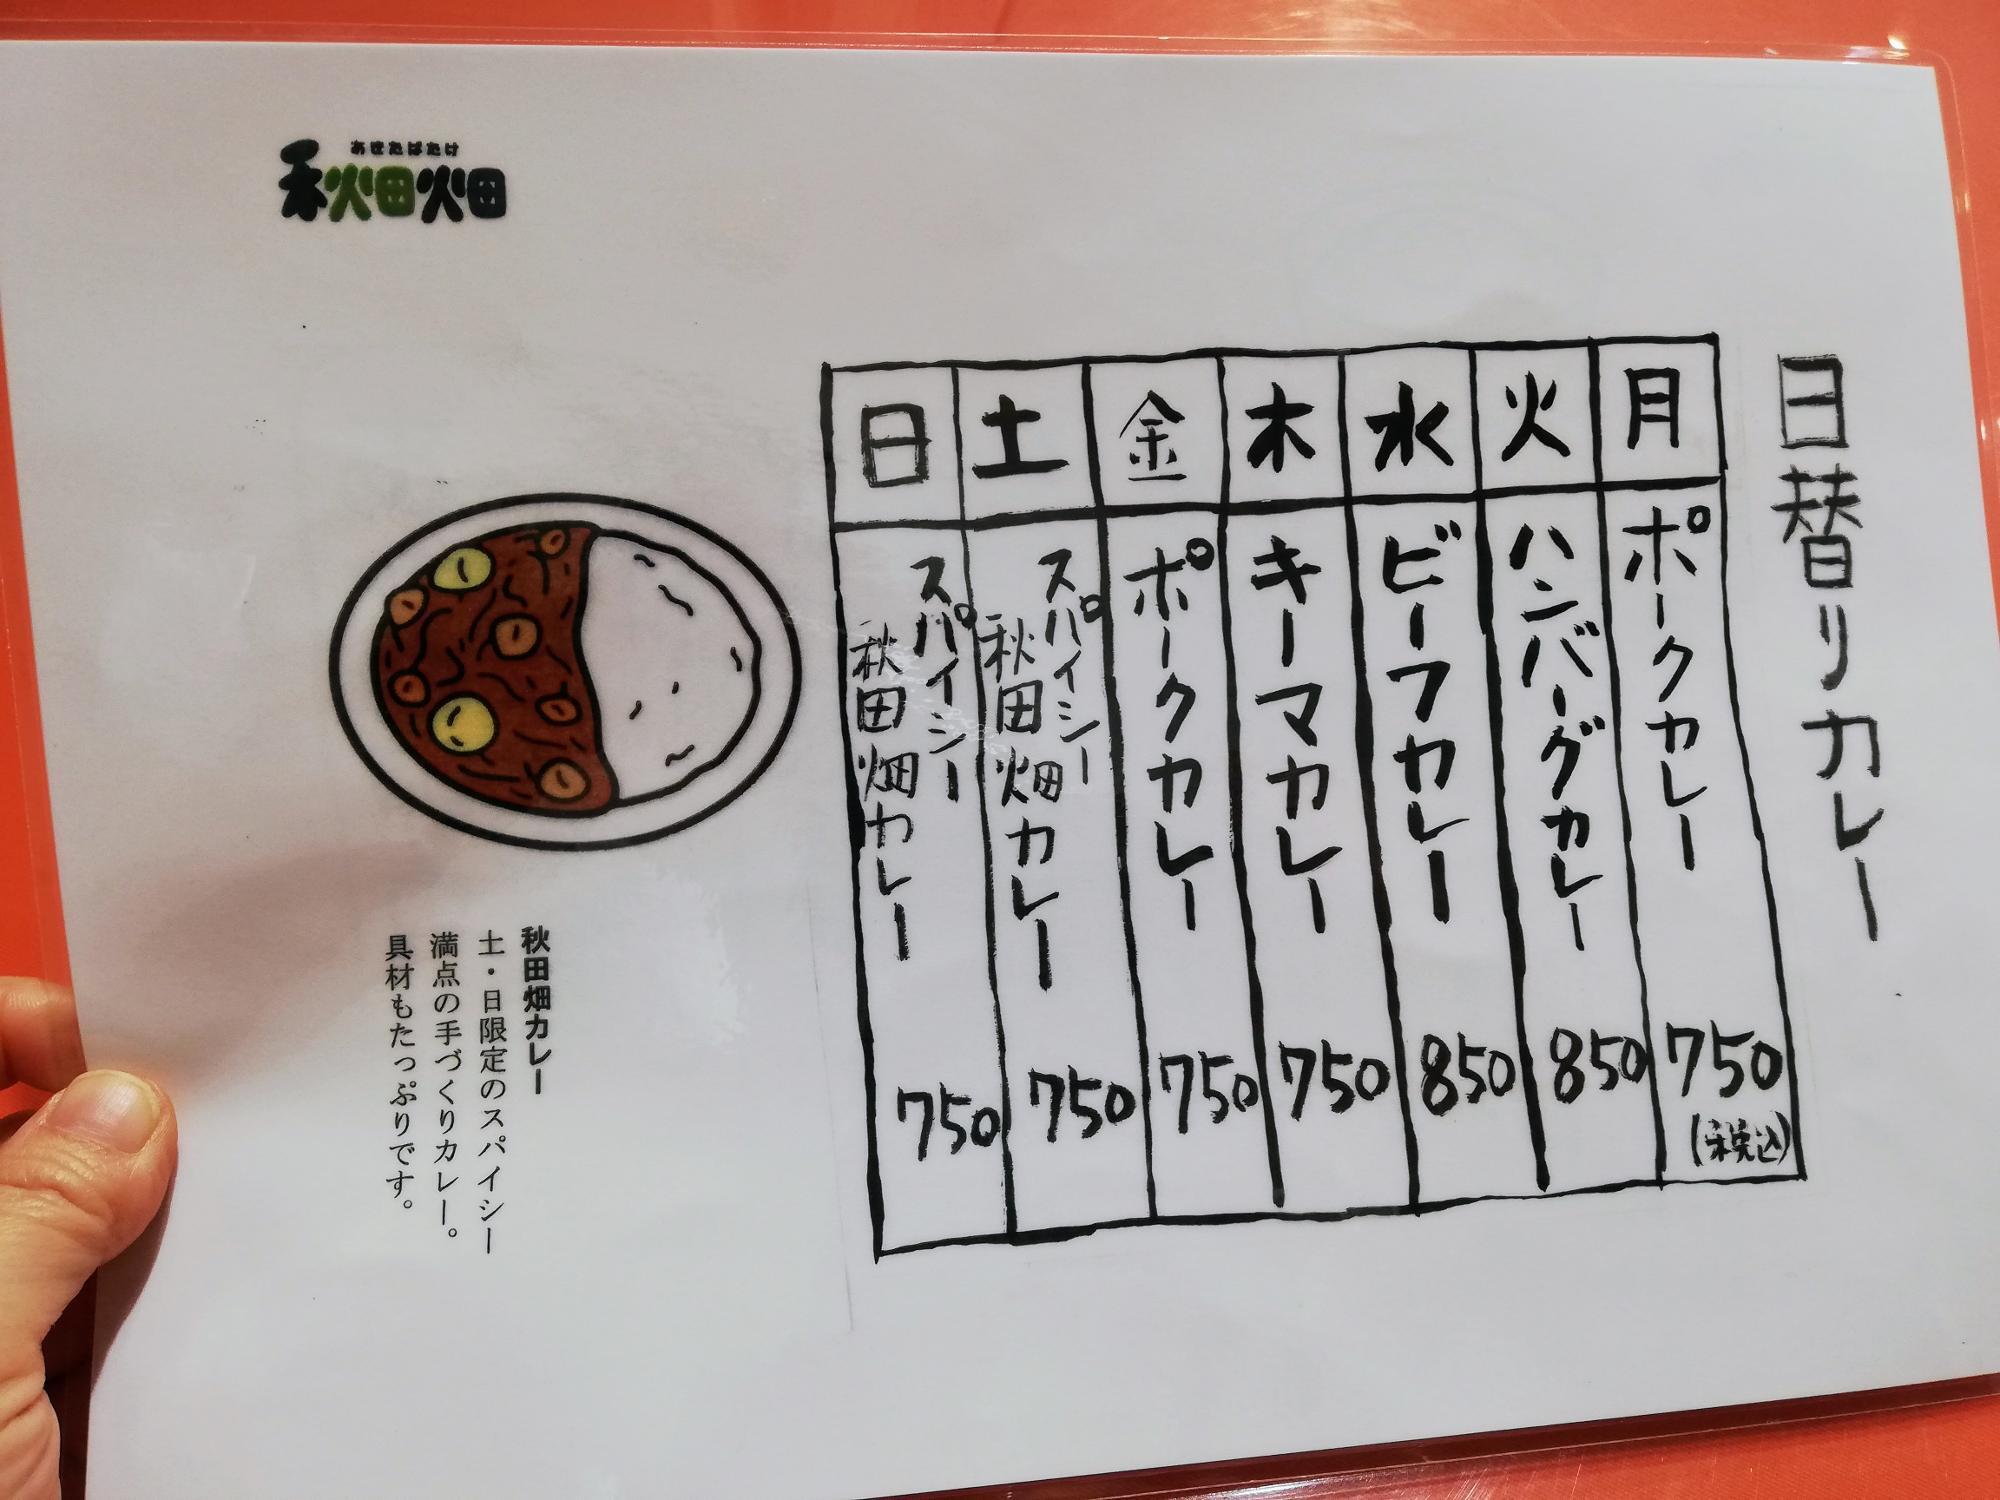 あきたばたけ
秋田畑
日替りカレー
月 ポークカレー 750 (税込)
火 ハンバーグカレー 850
水 ビーフカレー 850
木 キーマカレー 750
金 ポークカレー 750
土 スパイシー 秋田畑カレー 750
日 スパイシー 秋田畑カレー 750
秋田畑カレー
土・日限定のスパイシー
満点の手づくりカレー。
具材もたっぷりです。